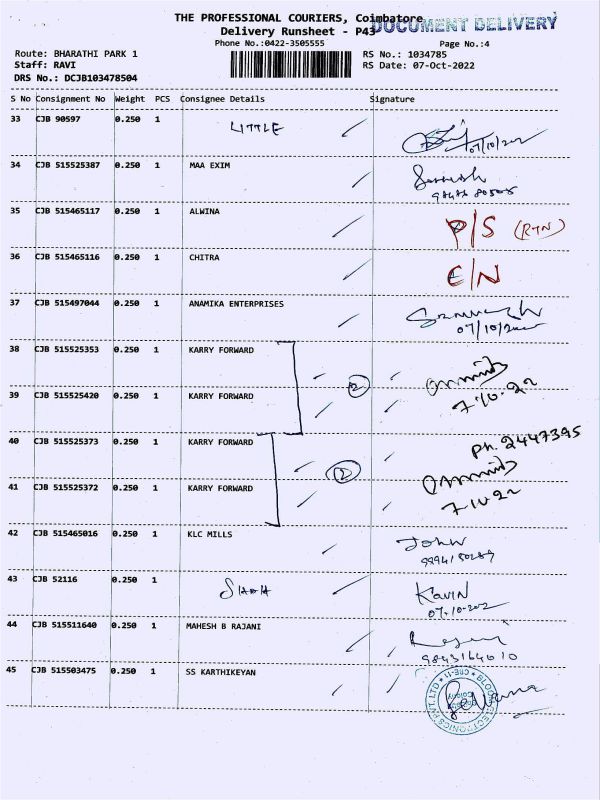 THE PROFESSIONAL COURIERS, Coimbatore
DOCUMENT DELIVERY
Delivery Runsheet - P43
Phone No.:0422-3505555
Page No.:4
Route: BHARATHI PARK 1
RS No.: 1034785
Staff: RAVI
RS Date: 07-Oct-2022
DRS No.: DCJB103478504
S No Consignment No Weight PCS Consignee Details Signature
33 CJB 90597 0.250 1 LITTLE
07/10/2022
34 CJB 515525387 0.250 1 MAA EXIM
35 CJB 515465117 0.250 1 ALWINA P/S (RTN)
36 CJB 515465116 0.250 1 CHITRA C/N
37 CJB 515497044 0.250 1 ANAMIKA ENTERPRISES
07/10/2022
38 CJB 515525353 0.250 1 KARRY FORWARD
2
7-10-22
39 CJB 515525420 0.250 1 KARRY FORWARD
40 CJB 515525373 0.250 1 KARRY FORWARD
Ph. 2447395
2
41 CJB 515525372 0.250 1 KARRY FORWARD
7-10-22
42 CJB 515465016 0.250 1 KLC MILLS John
43 CJB 52116 0.250 1 Kavin
07-10-202
44 CJB 515511640 0.250 1 MAHESH B RAJANI
9843164010
45 CJB 515503475 0.250 1 SS KARTHIKEYAN